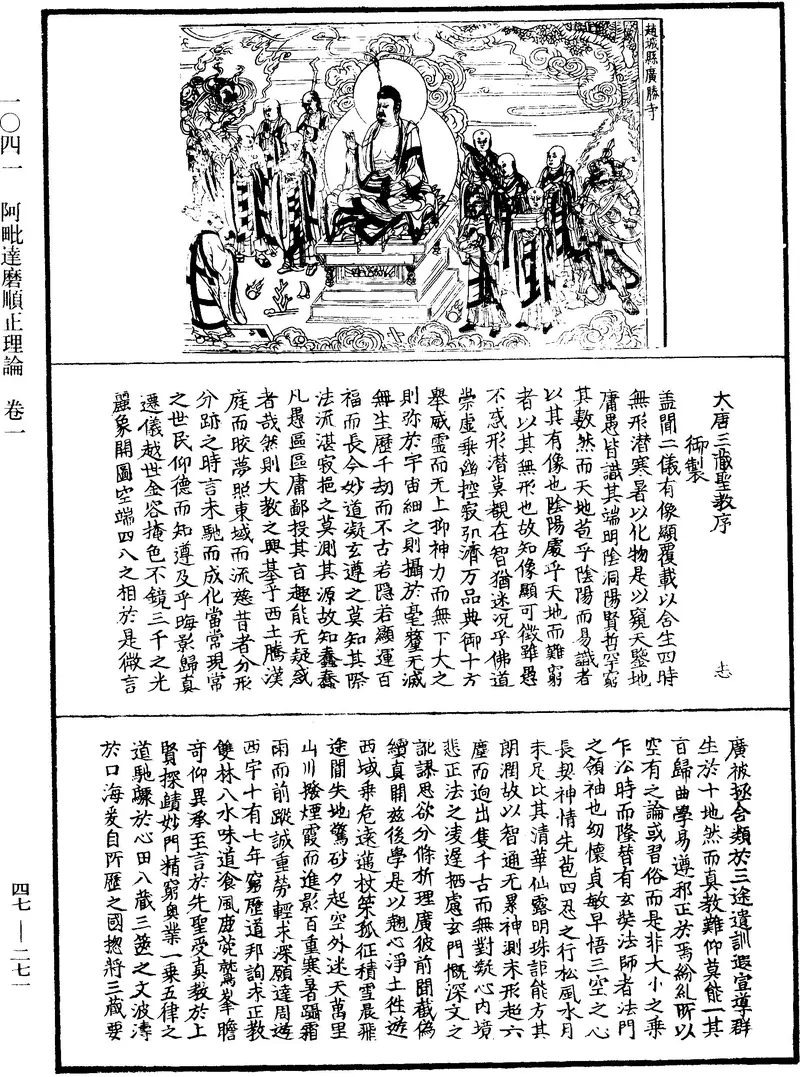 趙城縣廣勝寺
一〇四一　阿毗達磨順正理論　卷一
大唐三藏聖教序
御製
蓋聞二儀有像顯覆載以含生四時
無形潜寒暑以化物是以窺天鑒地
庸愚皆識其端明陰洞陽賢哲罕窮
其數然而天地苞乎陰陽而易識者
以其有像也陰陽處乎天地而難窮
者以其無形也故知像顯可徵雖愚
不惑形潜莫覩在智猶迷況乎佛道
崇虛乘幽控寂弘濟万品典御十方
舉威靈而无上抑神力而無下大之
則弥於宇宙細之則攝於毫釐无滅
無生歷千劫而不古若隐若顯運百
福而長今妙道凝玄遵之莫知其際
法流湛寂挹之莫測其源故知蠢蠢
凡愚區區庸鄙投其百趣能无疑惑
者哉然則大教之興基乎西土騰漢
庭而皎夢照東域而流慈昔者分形
分跡之時言未馳而成化當常現常
之世民仰德而知遵及乎晦影歸真
遷儀越世金容掩色不鏡三千之光
麗象開圖空端四八之相於是微言
廣被拯含類於三途遺訓遐宣導群
生於十地然而真教難仰莫能一其
百歸曲學易遵邪正於焉紛糺所以
空有之論或習俗而是非大小之乘
乍訟時而隆替有玄奘法師者法門
之領袖也幼懷貞敏早悟三空之心
長契神情先苞四忍之行松風水月
未足比其清華仙露明珠詎能方其
朗潤故以智通无累神測未形超六
塵而迥出隻千古而無對凝心内境
悲正法之凌遲栖慮玄門慨深文之
訛謀思欲分條析理廣彼前聞截偽
續真開兹後學是以翹心淨土往遊
西域乘危遠邁杖筞孤征積雪晨飛
途間失地驚砂夕起空外迷天萬里
山川撥煙霞而進影百重寒暑躡霜
雨而前蹤誠重勞輕求深願達周遊
西宇十有七年窮歷道邦詢求正教
雙林八水味道飡風鹿菀鷲峯瞻
奇仰異承至言於先聖受真教於上
賢探賾妙門精窮奥業一乘五律之
道馳驟於心田八藏三篋之文波濤
於口海爰自所歷之國揔將三藏要
四七—二七一